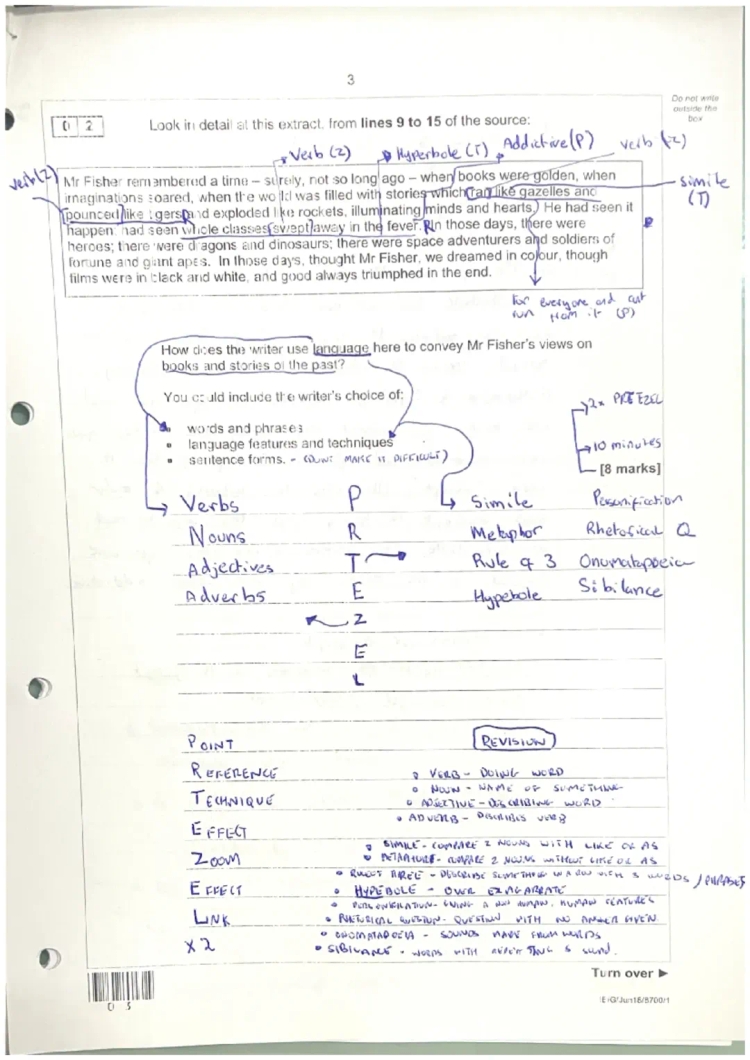 3
Do not write
outside the
box
0 2
Look in detail at this extract, from lines 9 to 15 of the source:
Verb (Z)
Hyperbole (T)
Addictive (P)
verb (Z)
verb (Z)
simile
(T)
Mr Fisher remembered a time – surely, not so long ago – when books were golden, when
imaginations soared, when the world was filled with stories which ran like gazelles and
pounced like tigers and exploded like rockets, illuminating minds and hearts. He had seen it
happen; had seen whole classes swept away in the fever. In those days, there were
heroes; there were dragons and dinosaurs; there were space adventurers and soldiers of
fortune and giant apes. In those days, thought Mr Fisher, we dreamed in colour, though
films were in black and white, and good always triumphed in the end.
For everyone and
run from it (P)
How does the writer use language here to convey Mr Fisher's views on
books and stories of the past?
You could include the writer's choice of:
• words and phrases
• language features and techniques
• sentence forms. - (DON'T MAKE IT DIFFICULT)
2x PRTEZEL
10 minutes
[8 marks]
Verbs P Simile Personification
Nouns R Metaphor Rhetorical Q
Adjectives T Rule of 3 Onomatopoeia
Adverbs E Hypebole Sibilance
Z
E
L
POINT
REFERENCE
TECHNIQUE
EFFECT
ZOOM
EFFECT
LINK
X2
REVISION
• VERB - DOING WORD
• NOUN - NAME OF SOMETHING
• ADJECTIVE - DESCRIBING WORD
• ADVERB - DESCRIBES VERB
• SIMILE - COMPARE 2 NOUNS WITH LIKE OR AS
• METAPHOR - COMPARE 2 NOUNS WITHOUT LIKE OR AS
• RULE OF THREE - DESCRIBE SOMETHING IN A ROW WITH 3 WORDS / PHRASES
• HYPEBOLE - OVER EXAGARRATE
• PERSONIFICATION - GIVING A NON HUMAN, HUMAN FEATURES
• RHETORICAL QUESTION - QUESTION WITH NO ANSWER GIVEN
• ONOMATAPOEIA - SOUNDS MADE FROM WORDS
• SIBILANCE - WORDS WITH S SOUND.
Turn over ►
0 3
IB/G/Jun18/8700/1